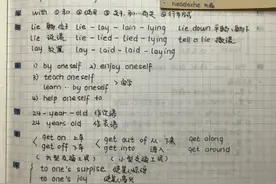 headache 头痛
with ① 和 ② 使用 ③ 具有
lie 躺 位于 lie - lay - lain - lying lie down 平躺
lie 说谎 lie - lied - lied - lying tell a lie 撒谎
lay 放置 lay - laid - laid - laying
1) by oneself 2) enjoy oneself
3) teach oneself
learn by oneself > 自学
4) help oneself to
24-year-old 作定语
24 years old 作表语
get on 上车 get out of 从 下来 get along
get off 下车 get into 进入 get around
(大型交通工具) (小型交通工具)
to one's surprise 使某人惊讶
to one's joy 使某人高兴